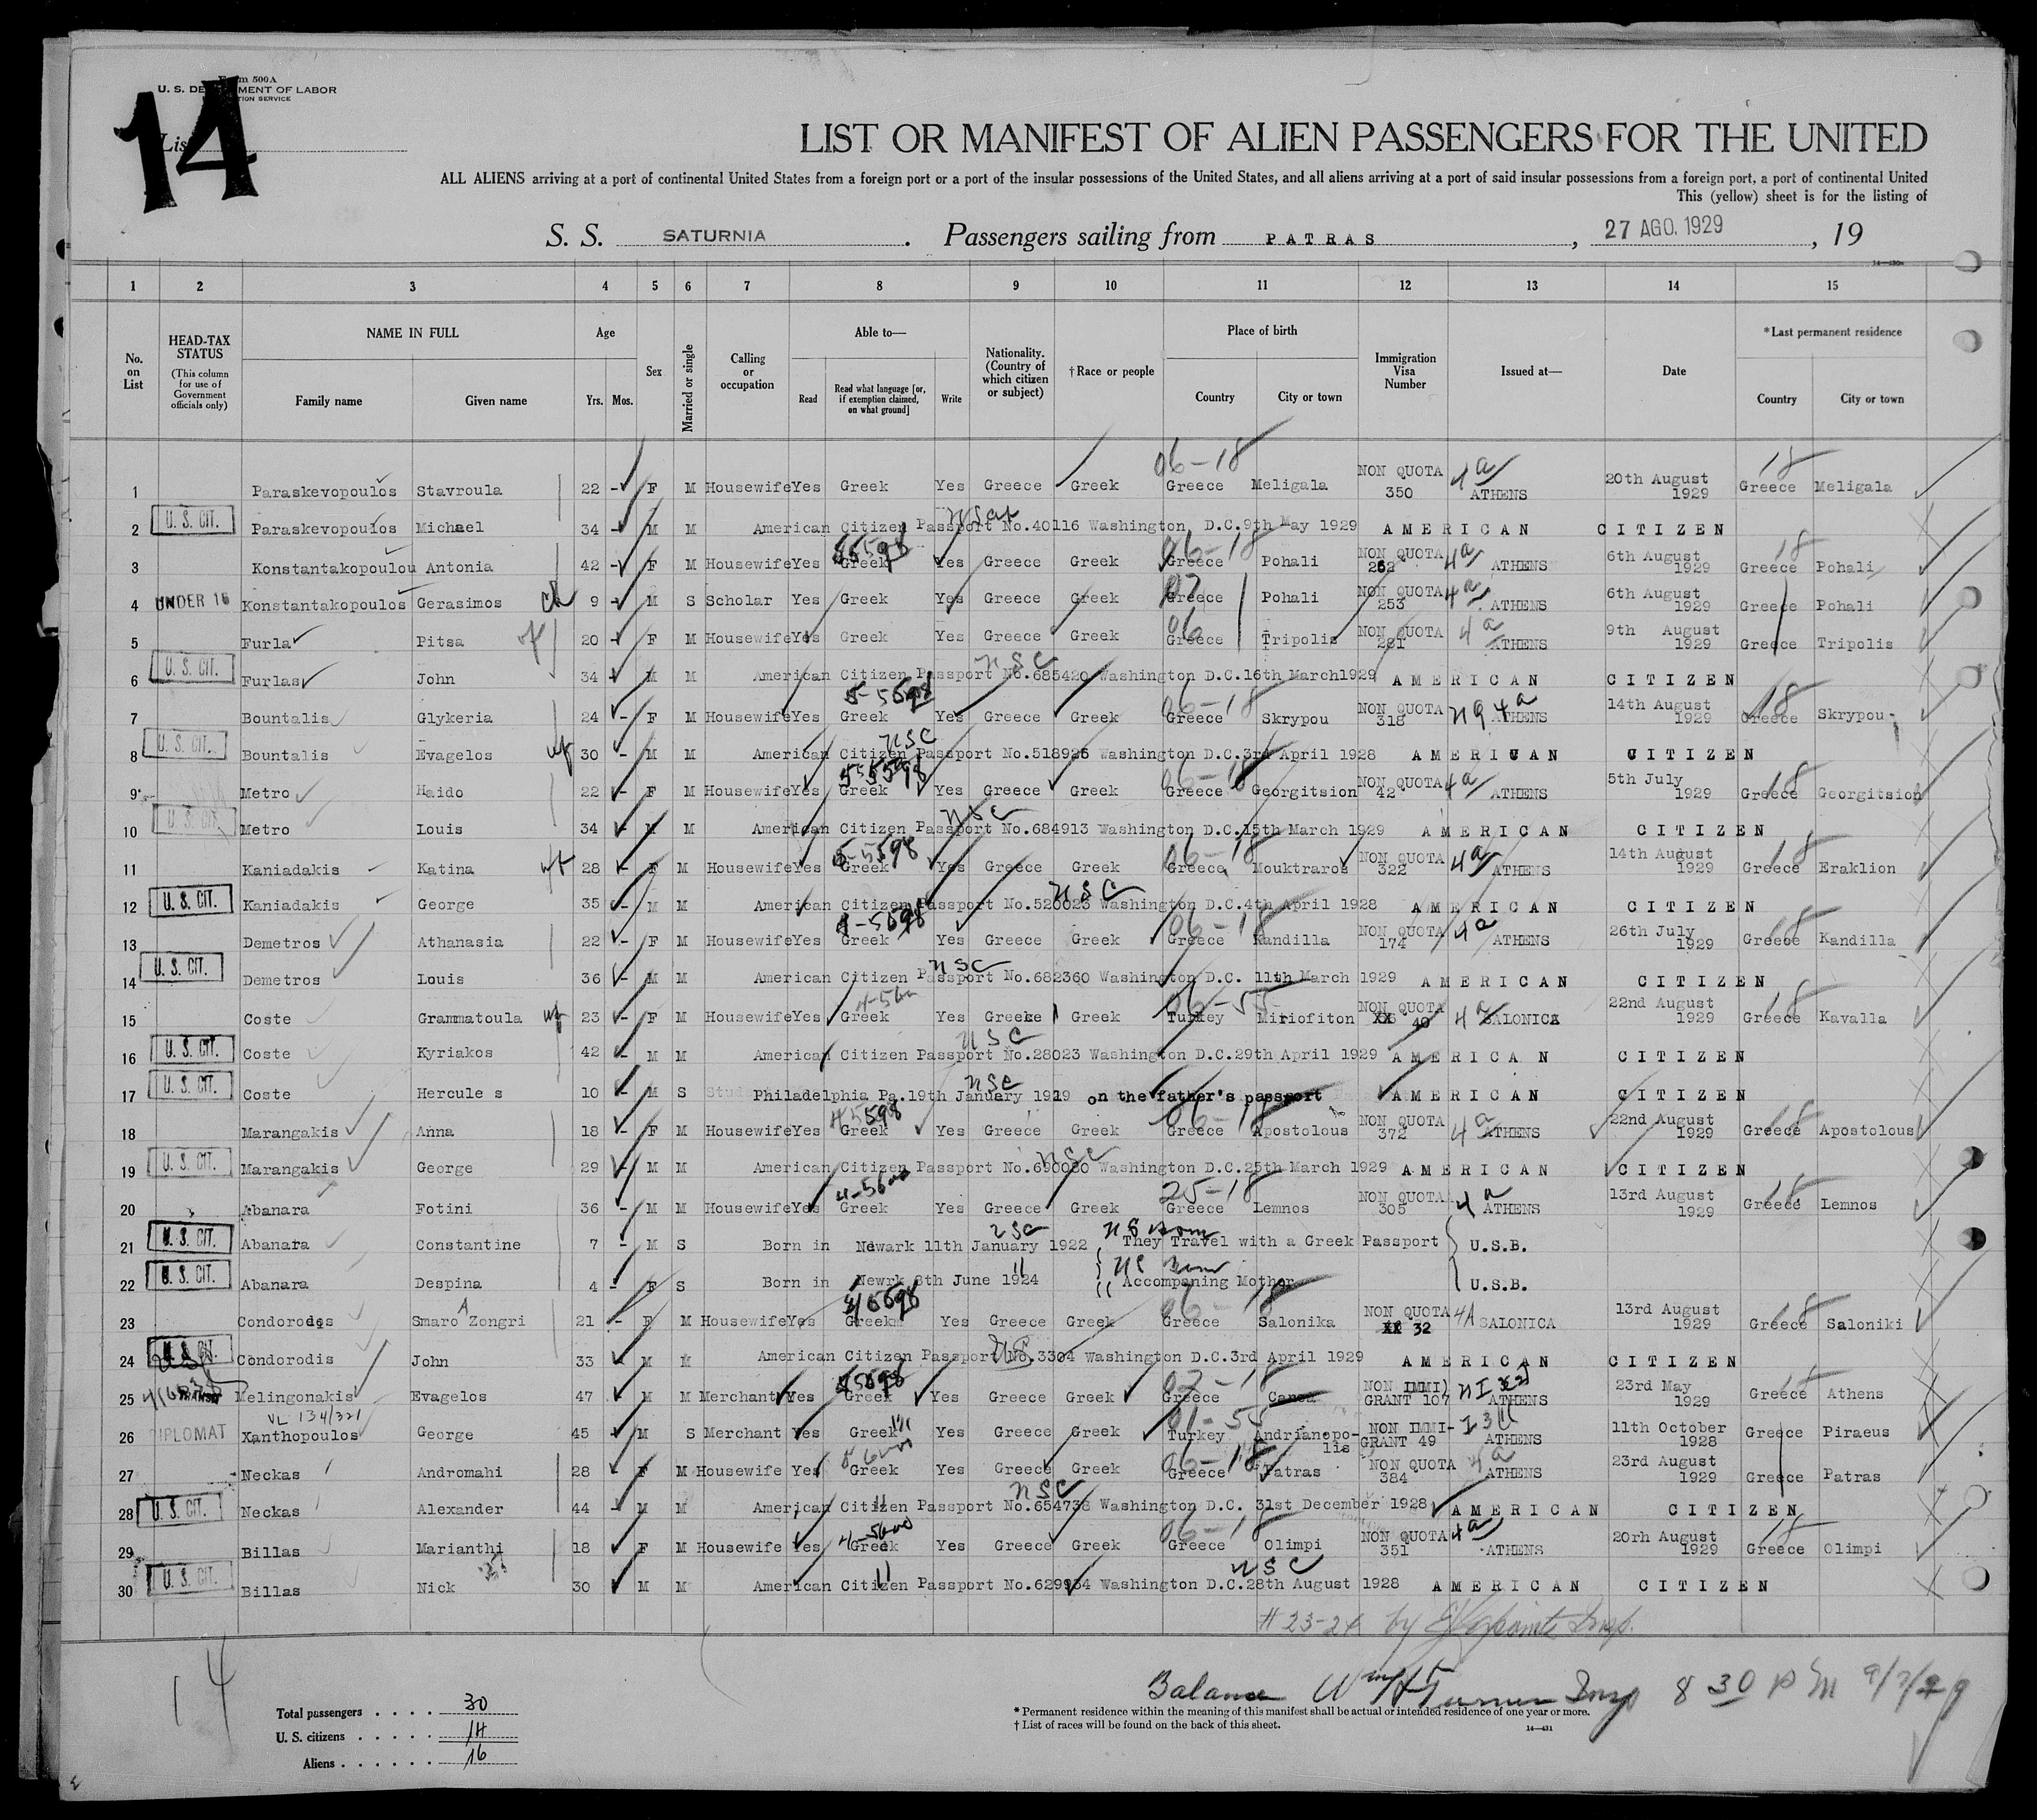 Form 500A
U. S. DEPARTMENT OF LABOR
14
LIST OR MANIFEST OF ALIEN PASSENGERS FOR THE UNITED
ALL ALIENS arriving at a port of continental United States from a foreign port or a port of the insular possessions of the United States, and all aliens arriving at a port of said insular possessions from a foreign port, a port of continental United
This (yellow) sheet is for the listing of
S. S. SATURNIA. Passengers sailing from PATRAS, 27 AGO. 1929, 19
1 2 3 4 5 6 7 8 9 10 11 12 13 14 15
No. on List HEAD-TAX STATUS (This column for use of Government officials only) NAME IN FULL Family name Given name Age Yrs. Mos. Sex Married or single Calling or occupation Able to— Read Read what language [or, if exemption claimed, on what ground] Write Nationality. (Country of which citizen or subject) †Race or people Place of birth Country City or town Immigration Visa Number Issued at— Date *Last permanent residence Country City or town
1 Paraskevopoulos Stavroula 22 - F M Housewife Yes Greek Yes Greece Greek 06-18 Greece Meligala NON QUOTA 350 4a ATHENS 20th August 1929 18 Greece Meligala
2 U. S. CIT. Paraskevopoulos Michael 34 - M M American Citizen Passport No.40116 Washington, D.C.9th May 1929 AMERICAN CITIZEN
3 Konstantakopoulou Antonia 42 - F M Housewife Yes Greek Yes Greece Greek 06-18 Greece Pohali NON QUOTA 252 4a ATHENS 6th August 1929 18 Greece Pohali
4 UNDER 16 Konstantakopoulos Gerasimos ch 9 - M S Scholar Yes Greek Yes Greece Greek 07 Greece Pohali NON QUOTA 253 4a ATHENS 6th August 1929 Greece Pohali
5 Furla Pitsa wf 20 - F M Housewife Yes Greek Yes Greece Greek 06 Greece Tripolis NON QUOTA 281 4a ATHENS 9th August 1929 Greece Tripolis
6 U. S. CIT. Furlas John 34 - M M American Citizen Passport No.685420 Washington D.C.16th March1929 USC AMERICAN CITIZEN
7 Bountalis Glykeria 24 - F M Housewife Yes Greek Yes Greece Greek 06-18 Greece Skrypou NON QUOTA 318 4a ATHENS 14th August 1929 18 Greece Skrypou
8 U. S. CIT. Bountalis Evagelos wf 30 - M M American Citizen Passport No.518926 Washington D.C.3rd April 1928 USC AMERICAN CITIZEN
9 Metro Haido 22 - F M Housewife Yes Greek Yes Greece Greek 06-18 Greece Georgitsion NON QUOTA 42 4a ATHENS 5th July 1929 18 Greece Georgitsion
10 U. S. CIT. Metro Louis 34 - M M American Citizen Passport No.684913 Washington D.C.15th March 1929 USC AMERICAN CITIZEN
11 Kaniadakis Katina wf 28 - F M Housewife Yes Greek 5-5598 Yes Greece Greek 06-18 Greece Mouktraros NON QUOTA 322 4a ATHENS 14th August 1929 18 Greece Eraklion
12 U. S. CIT. Kaniadakis George 35 - M M American Citizen Passport No.520023 Washington D.C.4th April 1928 USC AMERICAN CITIZEN
13 Demetros Athanasia 22 - F M Housewife Yes Greek Yes Greece Greek 06-18 Greece Kandilla NON QUOTA 174 4a ATHENS 26th July 1929 18 Greece Kandilla
14 U. S. CIT. Demetros Louis 36 - M M American Citizen Passport No.682360 Washington D.C. 11th March 1929 USC AMERICAN CITIZEN
15 Coste Grammatoula wf 23 - F M Housewife Yes Greek Yes Greece Greek 06-55 Turkey Miriofiton NON QUOTA 40 4a SALONICA 22nd August 1929 18 Greece Kavalla
16 U. S. CIT. Coste Kyriakos 42 - M M American Citizen Passport No.28023 Washington D.C.29th April 1929 USC AMERICAN CITIZEN
17 U. S. CIT. Coste Hercule s 10 - M S Philadelphia Pa.19th January 1919 on the father's passport USC AMERICAN CITIZEN
18 Marangakis Anna 18 - F M Housewife Yes Greek Yes Greece Greek 06-18 Greece Apostolous NON QUOTA 372 4a ATHENS 22nd August 1929 18 Greece Apostolous
19 U. S. CIT. Marangakis George 29 - M M American Citizen Passport No.690080 Washington D.C.25th March 1929 USC AMERICAN CITIZEN
20 Abanara Fotini 36 - M M Housewife Yes Greek Yes Greece Greek 25-18 Greece Lemnos NON QUOTA 305 4a ATHENS 13rd August 1929 18 Greece Lemnos
21 U. S. CIT. Abanara Constantine 7 - M S Born in Newark 11th January 1922 USC US Born They Travel with a Greek Passport U.S.B.
22 U. S. CIT. Abanara Despina 4 - F S Born in Newrk 8th June 1924 " US Born Accompaning Mother U.S.B.
23 Condorodis Smaro Zongri 21 - F M Housewife Yes Greek Yes Greece Greek 06-18 Greece Salonika NON QUOTA 32 4A SALONICA 13rd August 1929 18 Greece Saloniki
24 U. S. CIT. Condorodis John 33 - M M American Citizen Passport No.3304 Washington D.C.3rd April 1929 AMERICAN CITIZEN
25 Melingonakis Evagelos 47 M M Merchant Yes Greek Yes Greece Greek 07-18 Greece Canea NON IMMI) GRANT 107 ATHENS 23rd May 1929 18 Greece Athens
26 DIPLOMAT VL 134/321 Xanthopoulos George 45 M S Merchant Yes Greek Yes Greece Greek 01-55 Turkey Andrianopolis NON IMMI-GRANT 49 ATHENS 11th October 1928 Greece Piraeus
27 Neckas Andromahi 28 F M Housewife Yes Greek Yes Greece Greek 06-18 Greece Patras NON QUOTA 384 4a ATHENS 23rd August 1929 Greece Patras
28 U. S. CIT. Neckas Alexander 44 - M M American Citizen Passport No.654738 Washington D.C. 31st December 1928 USC AMERICAN CITIZEN
29 Billas Marianthi 18 F M Housewife Yes Greek Yes Greece Greek 06-18 Greece Olimpi NON QUOTA 351 4a ATHENS 20rh August 1929 18 Greece Olimpi
30 U. S. CIT. Billas Nick 30 M M American Citizen Passport No.629934 Washington D.C.28th August 1928 USC AMERICAN CITIZEN
# 23-24 by Insp.
14
Balance Wm Turner Insp 8 30 P M 9/7/29
Total passengers . . . . 30
U. S. citizens . . . . . 14
Aliens . . . . . . 16
* Permanent residence within the meaning of this manifest shall be actual or intended residence of one year or more.
† List of races will be found on the back of this sheet.
14—431